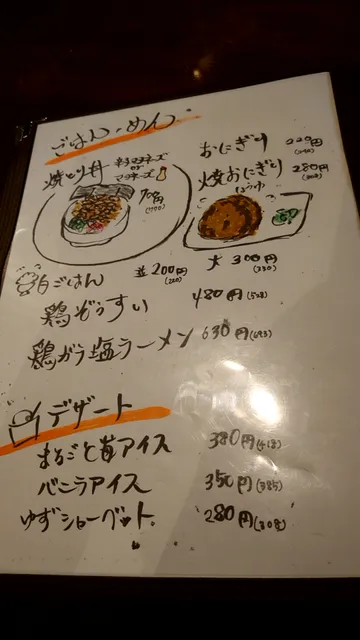 ごはん・めん
おにぎり 220円
焼おにぎり 280円(308)
しょうゆ
焼とり丼
マヨネーズ
700円(770)
白ごはん 並200円(220) 大300円(330)
鶏ぞうすい 480円(528)
鶏ガラ塩ラーメン 630円(693)
デザート
まるごと苺アイス 380円(418)
バニラアイス 350円(385)
ゆずシャーベット 280円(308)